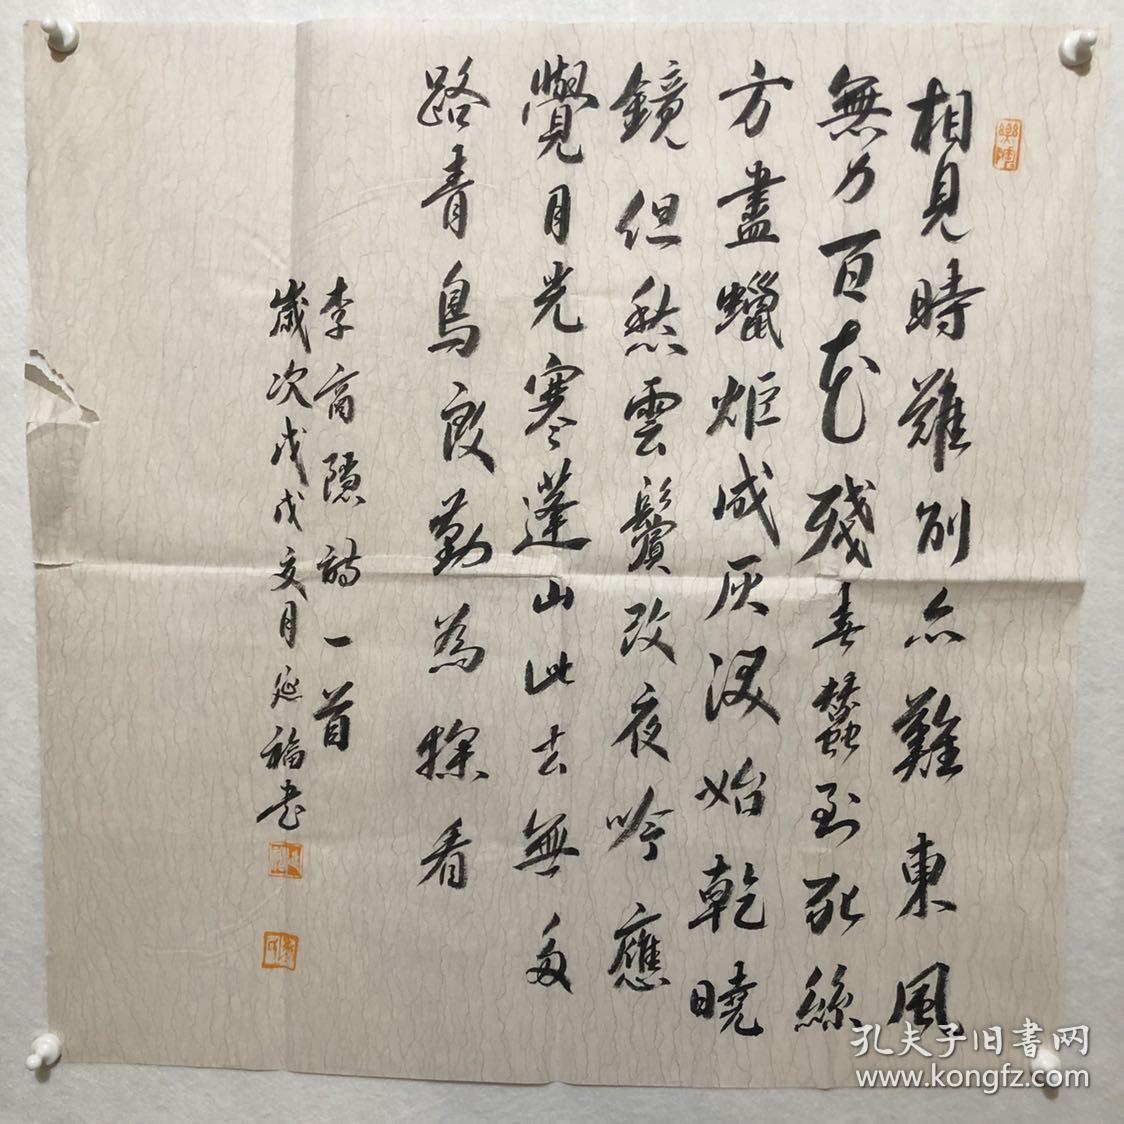 相見時難別亦難東風
無力百花殘春蠶到死絲
方盡蠟炬成灰淚始乾曉
鏡但愁雲鬢改夜吟應
覺月光寒蓬山此去無多
路青鳥殷勤為探看
李商隱詩一首
歲次戊戌夏月延福書
孔夫子旧書网
www.kongfz.com